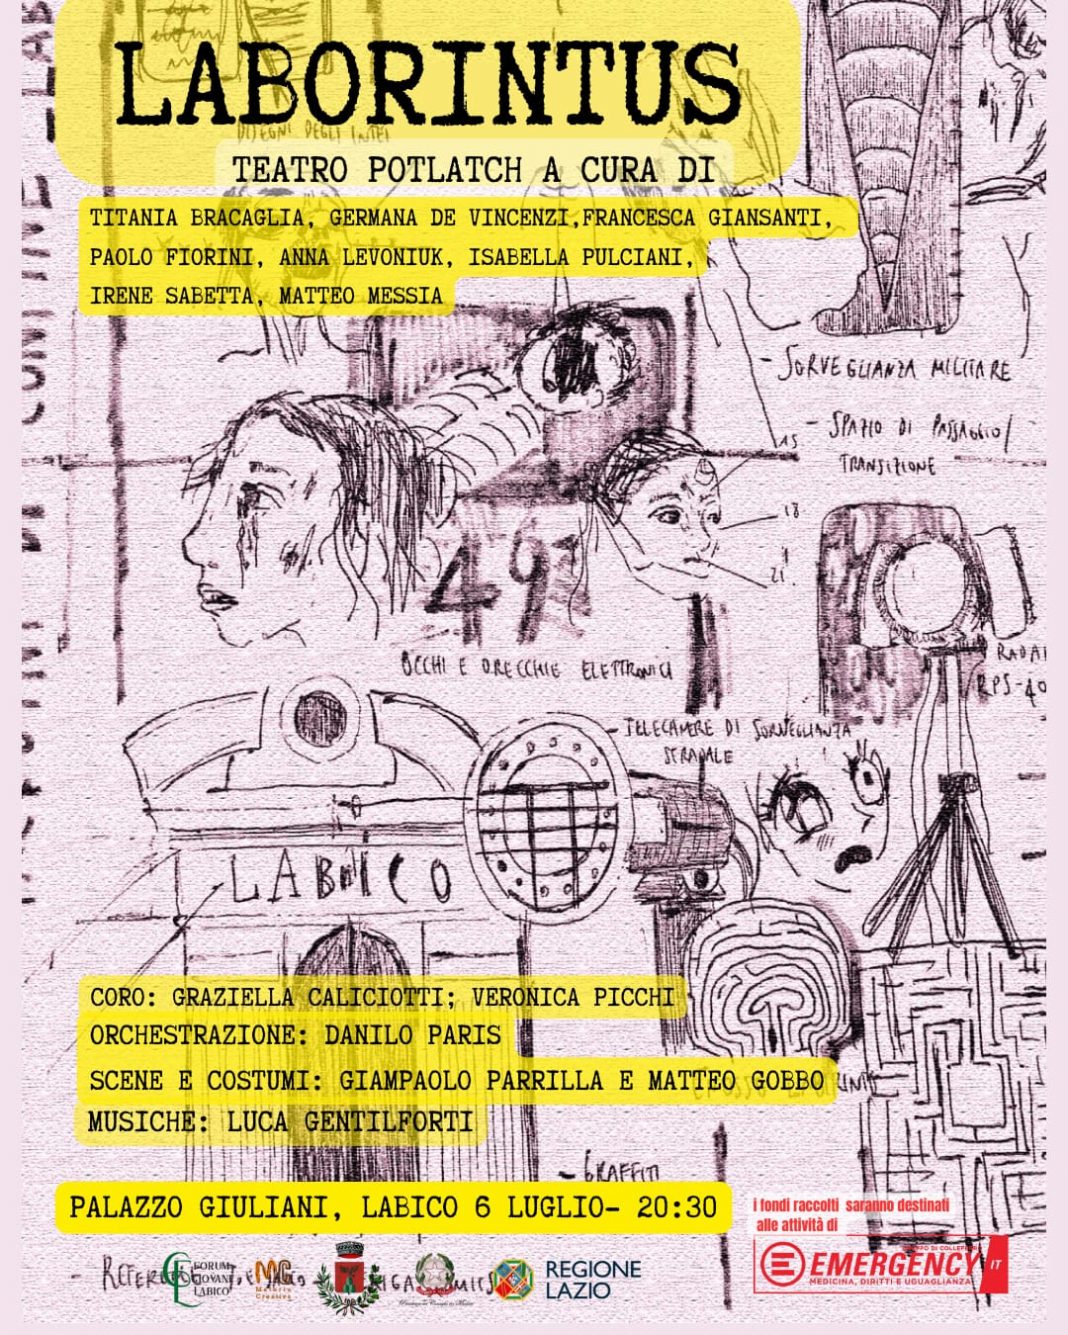 LABORINTUS
DISEGNI DEGLI
TEATRO POTLATCH A CURA DI
TITANIA BRACAGLIA, GERMANA DE VINCENZI,FRANCESCA GIANSANTI,
PAOLO FIORINI, ANNA LEVONIUK, ISABELLA PULCIANI,
IRENE SABETTA, MATTEO MESSIA
- SORVEGLIANZA MILITARE
- SPAZIO DI PASSAGGIO/
TRANSIZIONE
15
18
21
49
OCCHI E ORECCHIE ELETTRONICI
RADAR
RPS-40
- TELECAMERE DI SORVEGLIANZA
STRADALE
LABICO
CORO: GRAZIELLA CALICIOTTI; VERONICA PICCHI
ORCHESTRAZIONE: DANILO PARIS
SCENE E COSTUMI: GIAMPAOLO PARRILLA E MATTEO GOBBO
MUSICHE: LUCA GENTILFORTI
- GRAFFITI
PALAZZO GIULIANI, LABICO 6 LUGLIO- 20:30
I fondi raccolti saranno destinati
alle attività di
EMERGENCY
IT
MEDICINA, DIRITTI E UGUAGLIANZA
FORUM
GIOVANI
LABICO
MC
Materia
Creativa
REGIONE
LAZIO